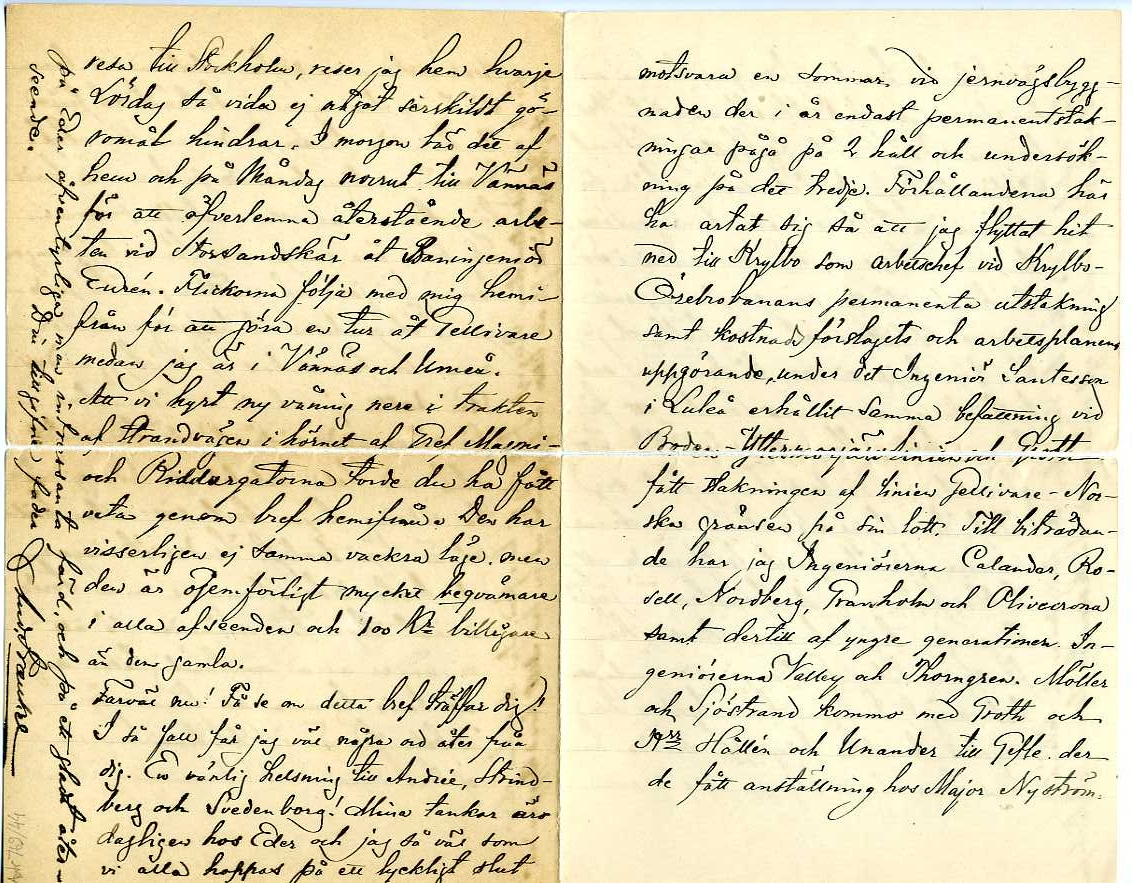 resa till Stockholm, reser jag hem hvarje
Lördag så vida ej något serskildt gö-
romål hindrar. I morgon bär det af
hem och på Måndag norrut till Vännäs
för att öfverlemna återstående arbe-
ten vid Storsandskär åt Baningeniör
Eurén. Flickorna följa med mig hemi-
från för att göra en tur åt Gellivare
medan jag är i Vännäs och Umeå.
Att vi hyrt ny våning nere i trakten
af Strandvägen i hörnet af Gref Magni-
och Riddargatorna torde du ha fått
veta genom bref hemifrån. Den har
visserligen ej samma vackra läge, men
den är ojemförligt mycket beqvämare
i alla afseenden och 100 Kr billigare
än den gamla.
Farväl nu! Få se om detta bref träffar dig!
I så fall får jag väl några ord åter från
dig. En vänlig helsning till Andrée, Strind-
berg och Svedenborg! Mina tankar äro
dagligen hos Eder och jag så väl som
vi alla hoppas på ett lyckligt slut
på Eder äfventyrliga men intressanta färd, och på ett gladt åter-
seende.
Din tillgifne fader
motsvara en sommar vid jernvägsbygg-
naden der i år endast permanentstak-
ningar pågå på 2 håll och undersök-
ning på det tredje. Förhållandena här
ha artat sig så att jag flyttat hit
ned till Krylbo som arbetschef vid Krylbo-
Örebrobanans permanenta utstakning
samt kostnadsförslagets och arbetsplanens
uppgörande, under det Ingeniör Santesson
i Luleå erhållit samma befattning vid
Boden- linien och Groth
fått stakningen af linien Gellivare-Nor-
ska gränsen på sin lott. Till biträdan-
de har jag Ingeniörerna Calander, Ro-
sell, Nordberg, Tranholm och Olivecrona
samt dertill af yngre generationen In-
geniörerna Valley och Thorngren. Möller
och Sjöstrand kommo med Groth och
Hrr Hallén och Unander till Gefle der
de fått anställning hos Major Nyström.